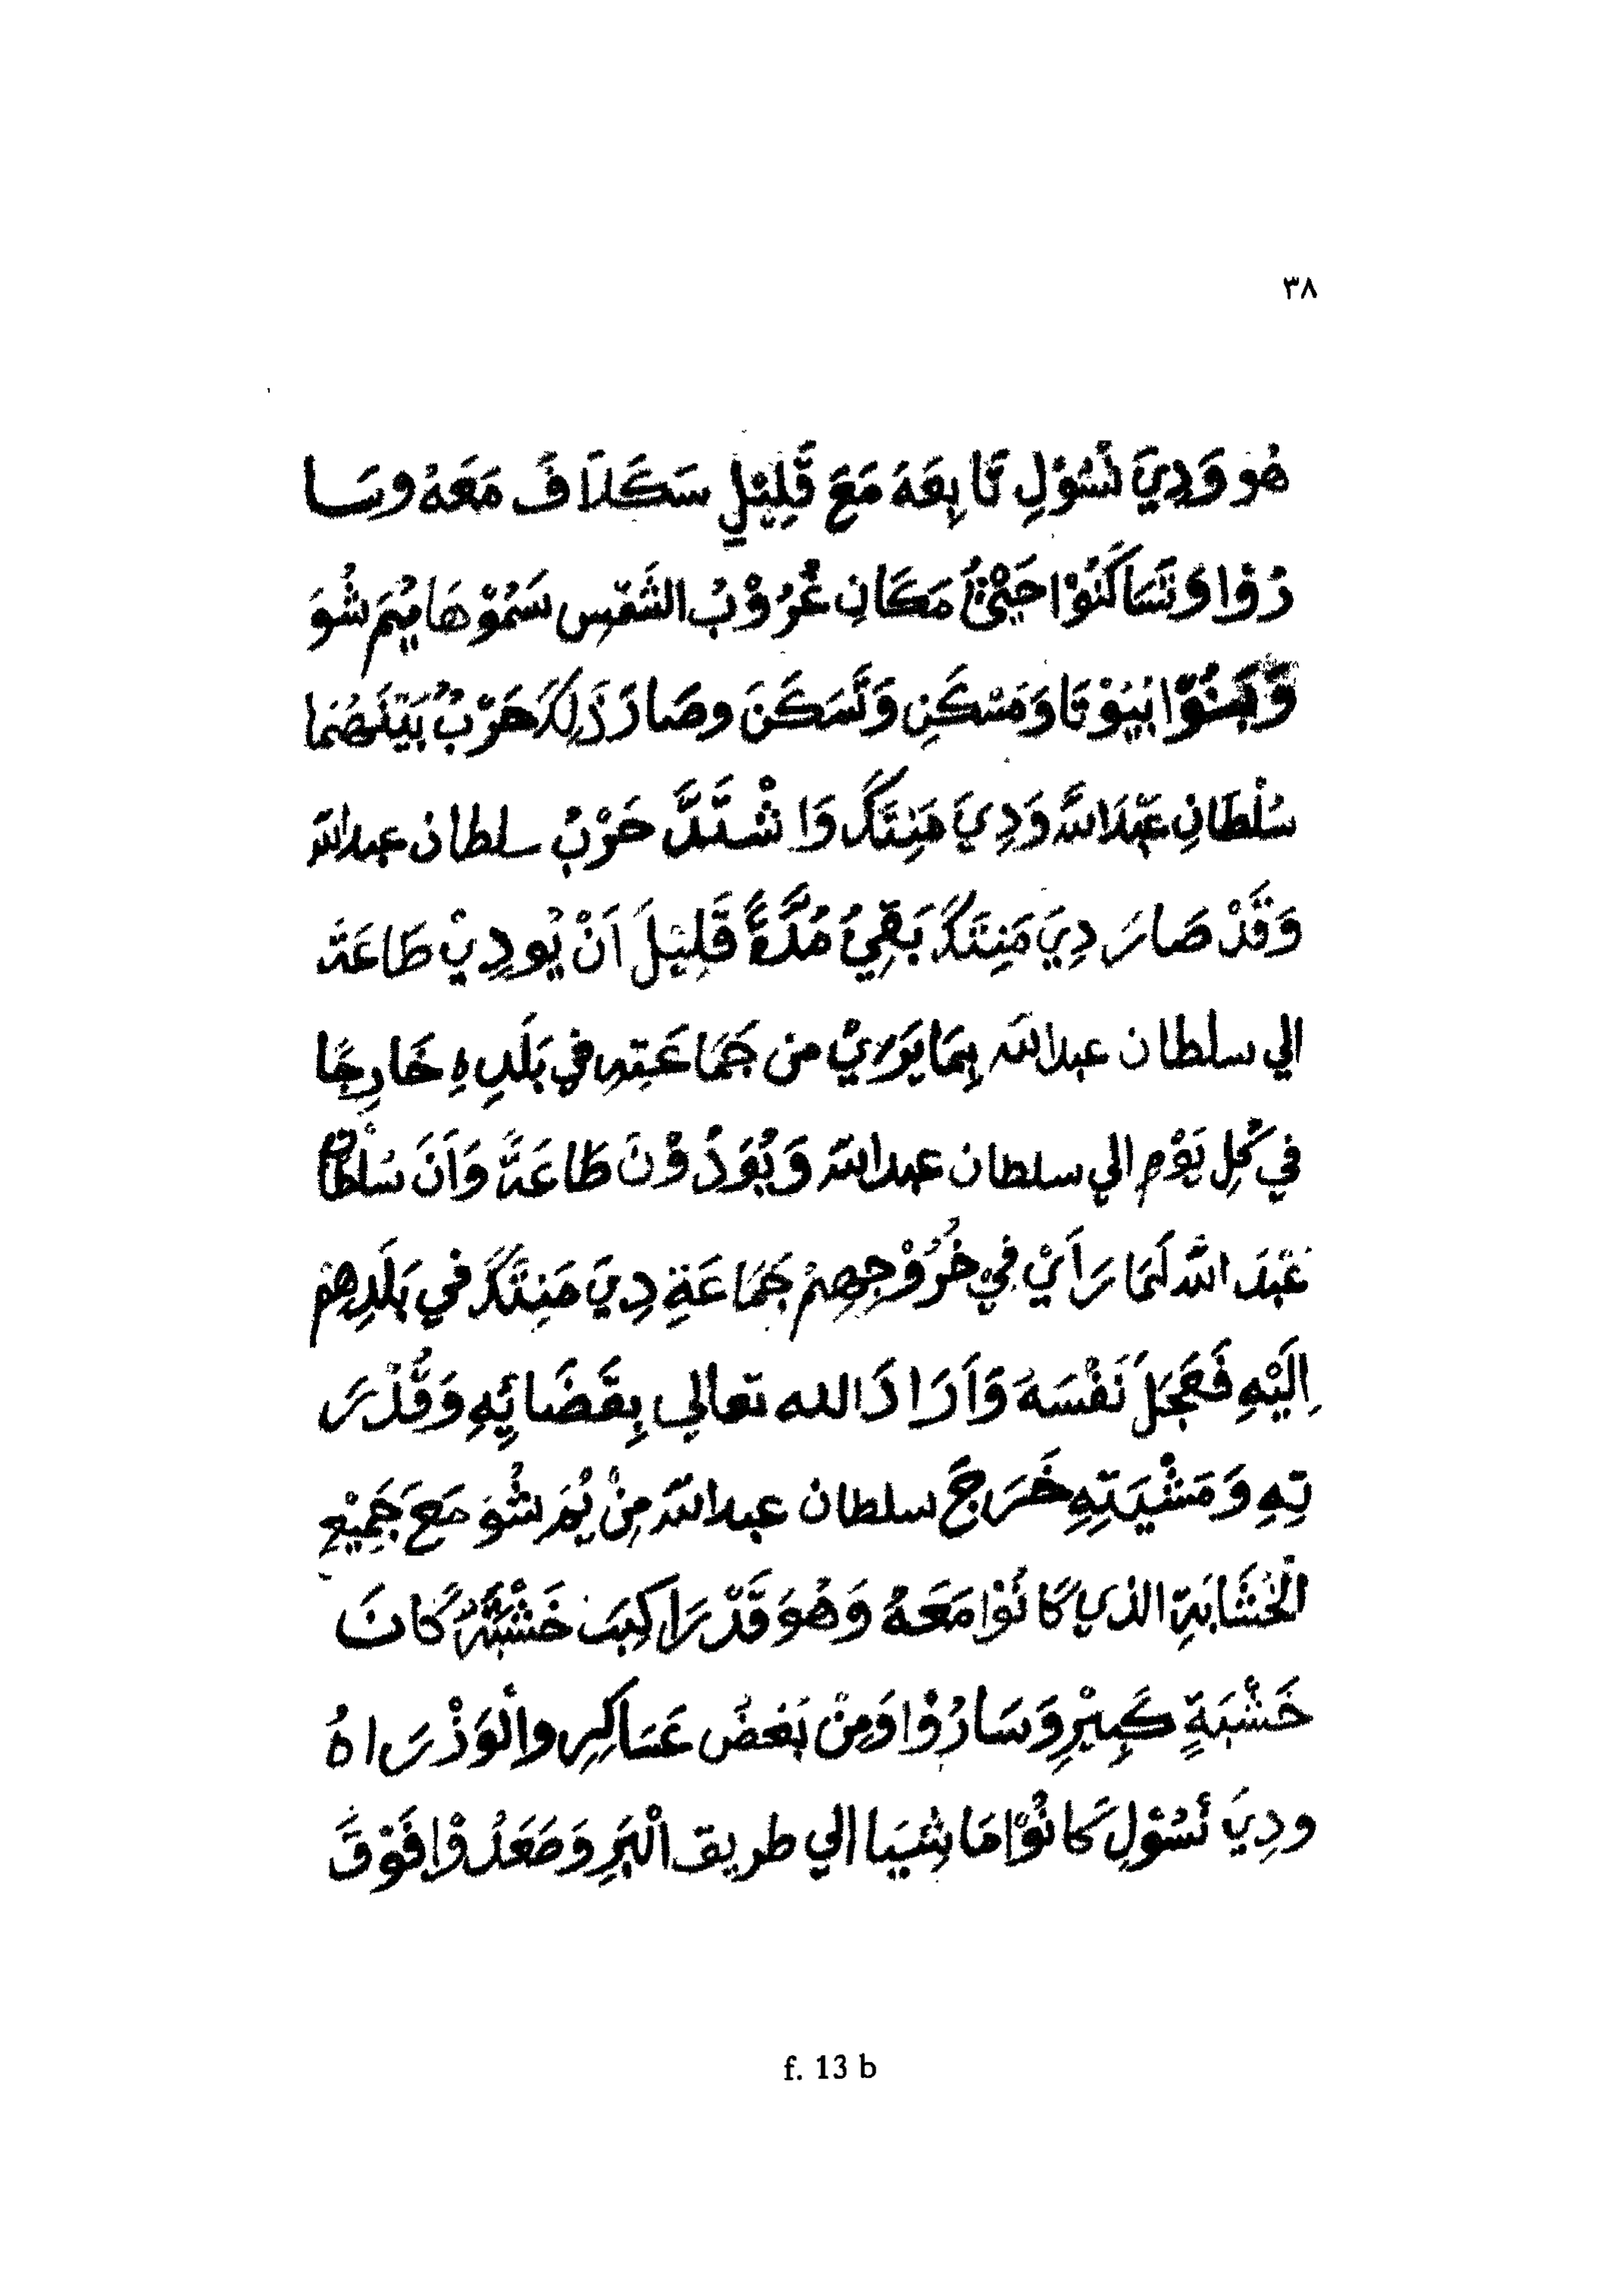 ٣٨
هُو وَدِيَ نَسُوْلِ تَابِعَهَ مَعَ قَلِيْلٍ سَكَلَافَ مَعَهُ وسَا
رُوْا وَتَسَاكَنُوْا حَتْيُ مَكَانِ غُرُوْبُ الشَمْسِ سَمُوْهَا يُمَ شُوَ
وَبَنُوْا بُيُوْتَا وَمَسْكَنِ وَتَسَكَنَ وصَارَ ذَلِكَ حَرْبُ بَيْنَهُمَا
سُلْطَانِ عَبْدَاللَّه وَدِيَ مَنِتَكَ وَاشْتَدَّ حَرْبُ سلطان عبدالله
وَقَدْ صَارَ دِيَ مَنِتَكَ بَقِيُ مُدَّةً قَلِيْلَ اَنْ يُودِيْ طَاعَةً
الي سلطان عبدالله بِمَا يَوَرِيْ من جَمَاعَتِهِ في بَلَدِهِ خَارِجًا
في كُلِ يَوْمِ الي سلطان عبدالله وَيُوَدُوْنَ طَاعَةً وَاَنَ سُلْطَان
عَبْدَ اللَّه لَمَا رَاَيْ فِيْ خُرُوْجِهِمْ جَمَاعَةِ دِيَ مَنِتَكَ في بَلَدِهِمْ
اِلَيْهِ فَعَجَلَ نَفْسَهَ وَاَرَادَ الله تعالي بِقَضَائِهِ وَقُدْرَ
تِهِ وَمَشْيَتِهِ خَرَجَ سلطان عبدالله مِنْ يُمَ شُوَ مَعَ جَمِيْعِ
الْخَشَابَةِ الذي كَانُوْا مَعَهُ وَهُوَ قَدْ رَاكِبَ خَشْبَةً كَانَ
خَشْبَةٍ كَبِيْرِ وَسَارُوْا وَمِنْ بَعْضُ عَسَاكِرِ والْوَزْرَاهُ
ودِيَ نَسُوْلِ كَانُوْا مَاشِيَا الي طريق الْبَرِ وَصَعَدُوْا فَوْقَ
f. 13 b